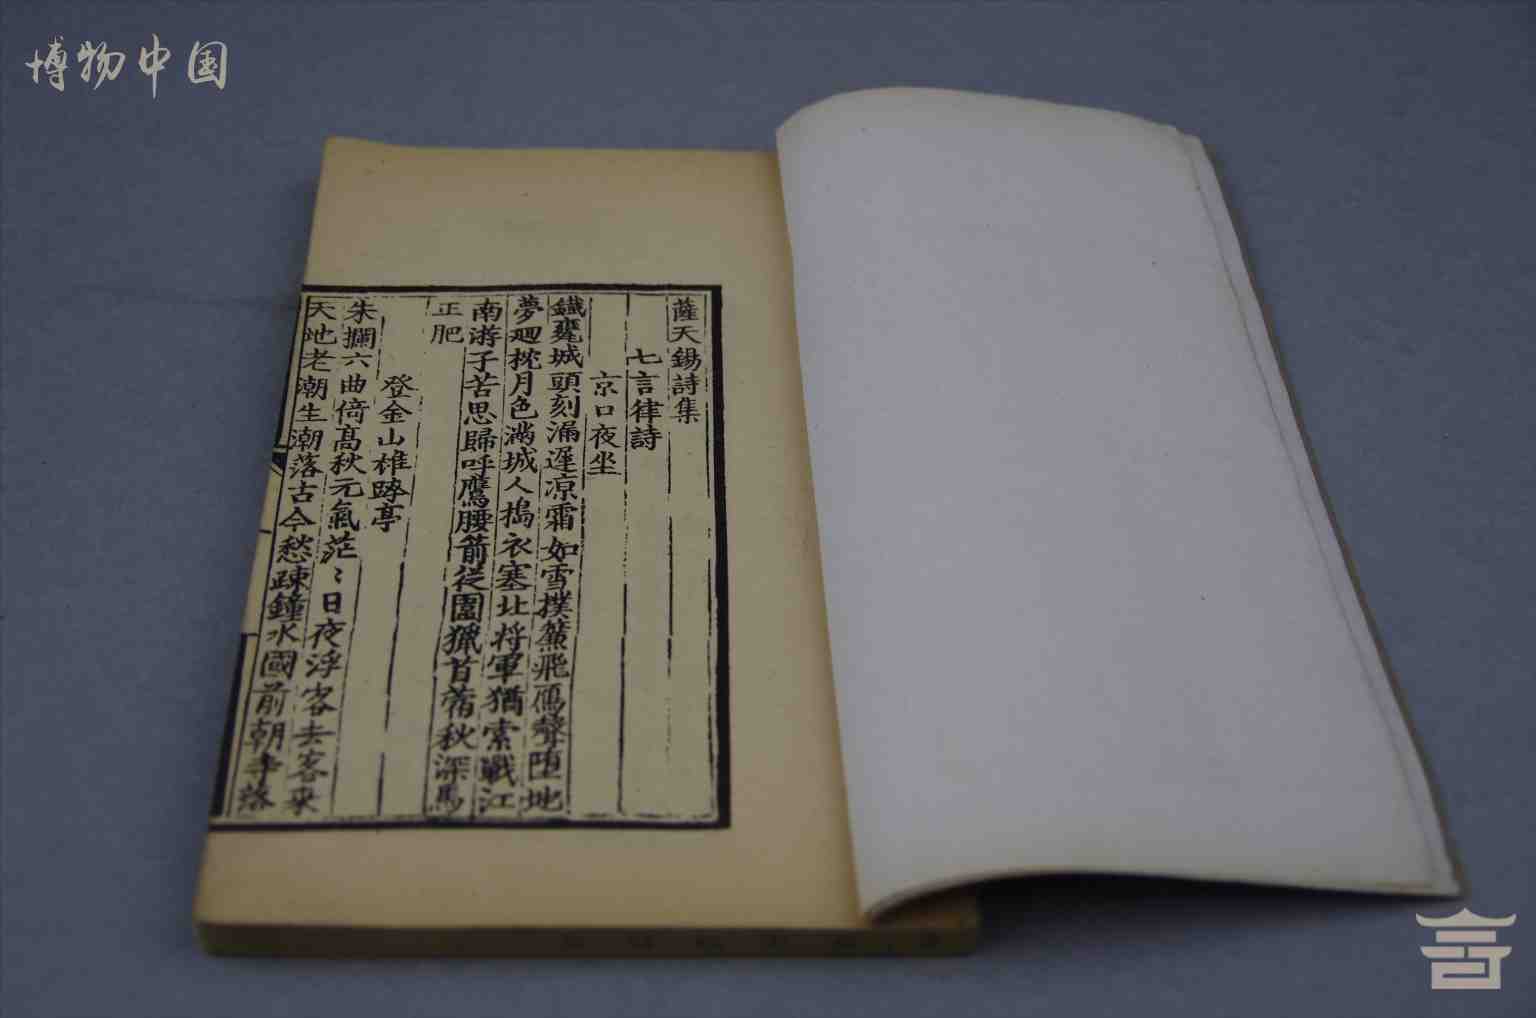 博物中国
薩天錫詩集
七言律詩
京口夜坐
鐵甕城頭刻漏遲凉霜如雪撲簾飛鴈聲堕地
夢迴枕月色滿城人搗衣塞北将軍猶索戰江
南游子苦思歸呼鷹腰箭從圍獵苜蓿秋深馬
正肥
登金山雄跨亭
朱攔六曲倚髙秋元氣茫〻日夜浮客去客來
天地老潮生潮落古今愁踈鐘水國前朝寺落